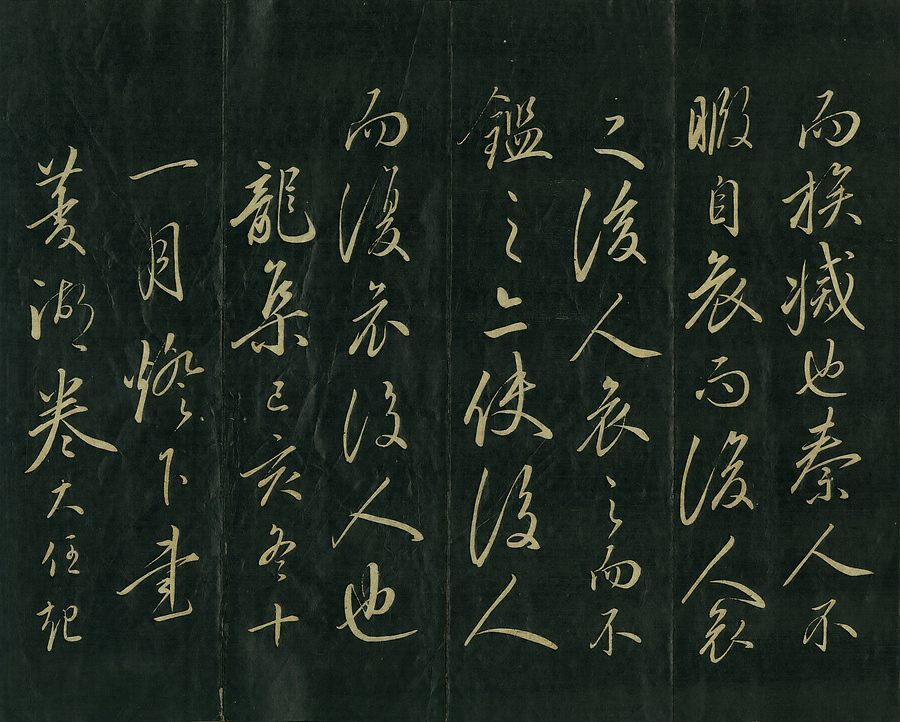 而族滅也秦人不
暇自哀而後人哀
之後人哀之而不
鑑之亦使後人
而復哀後人也
龍集己亥冬十
一月燈下書
菱湖卷大任